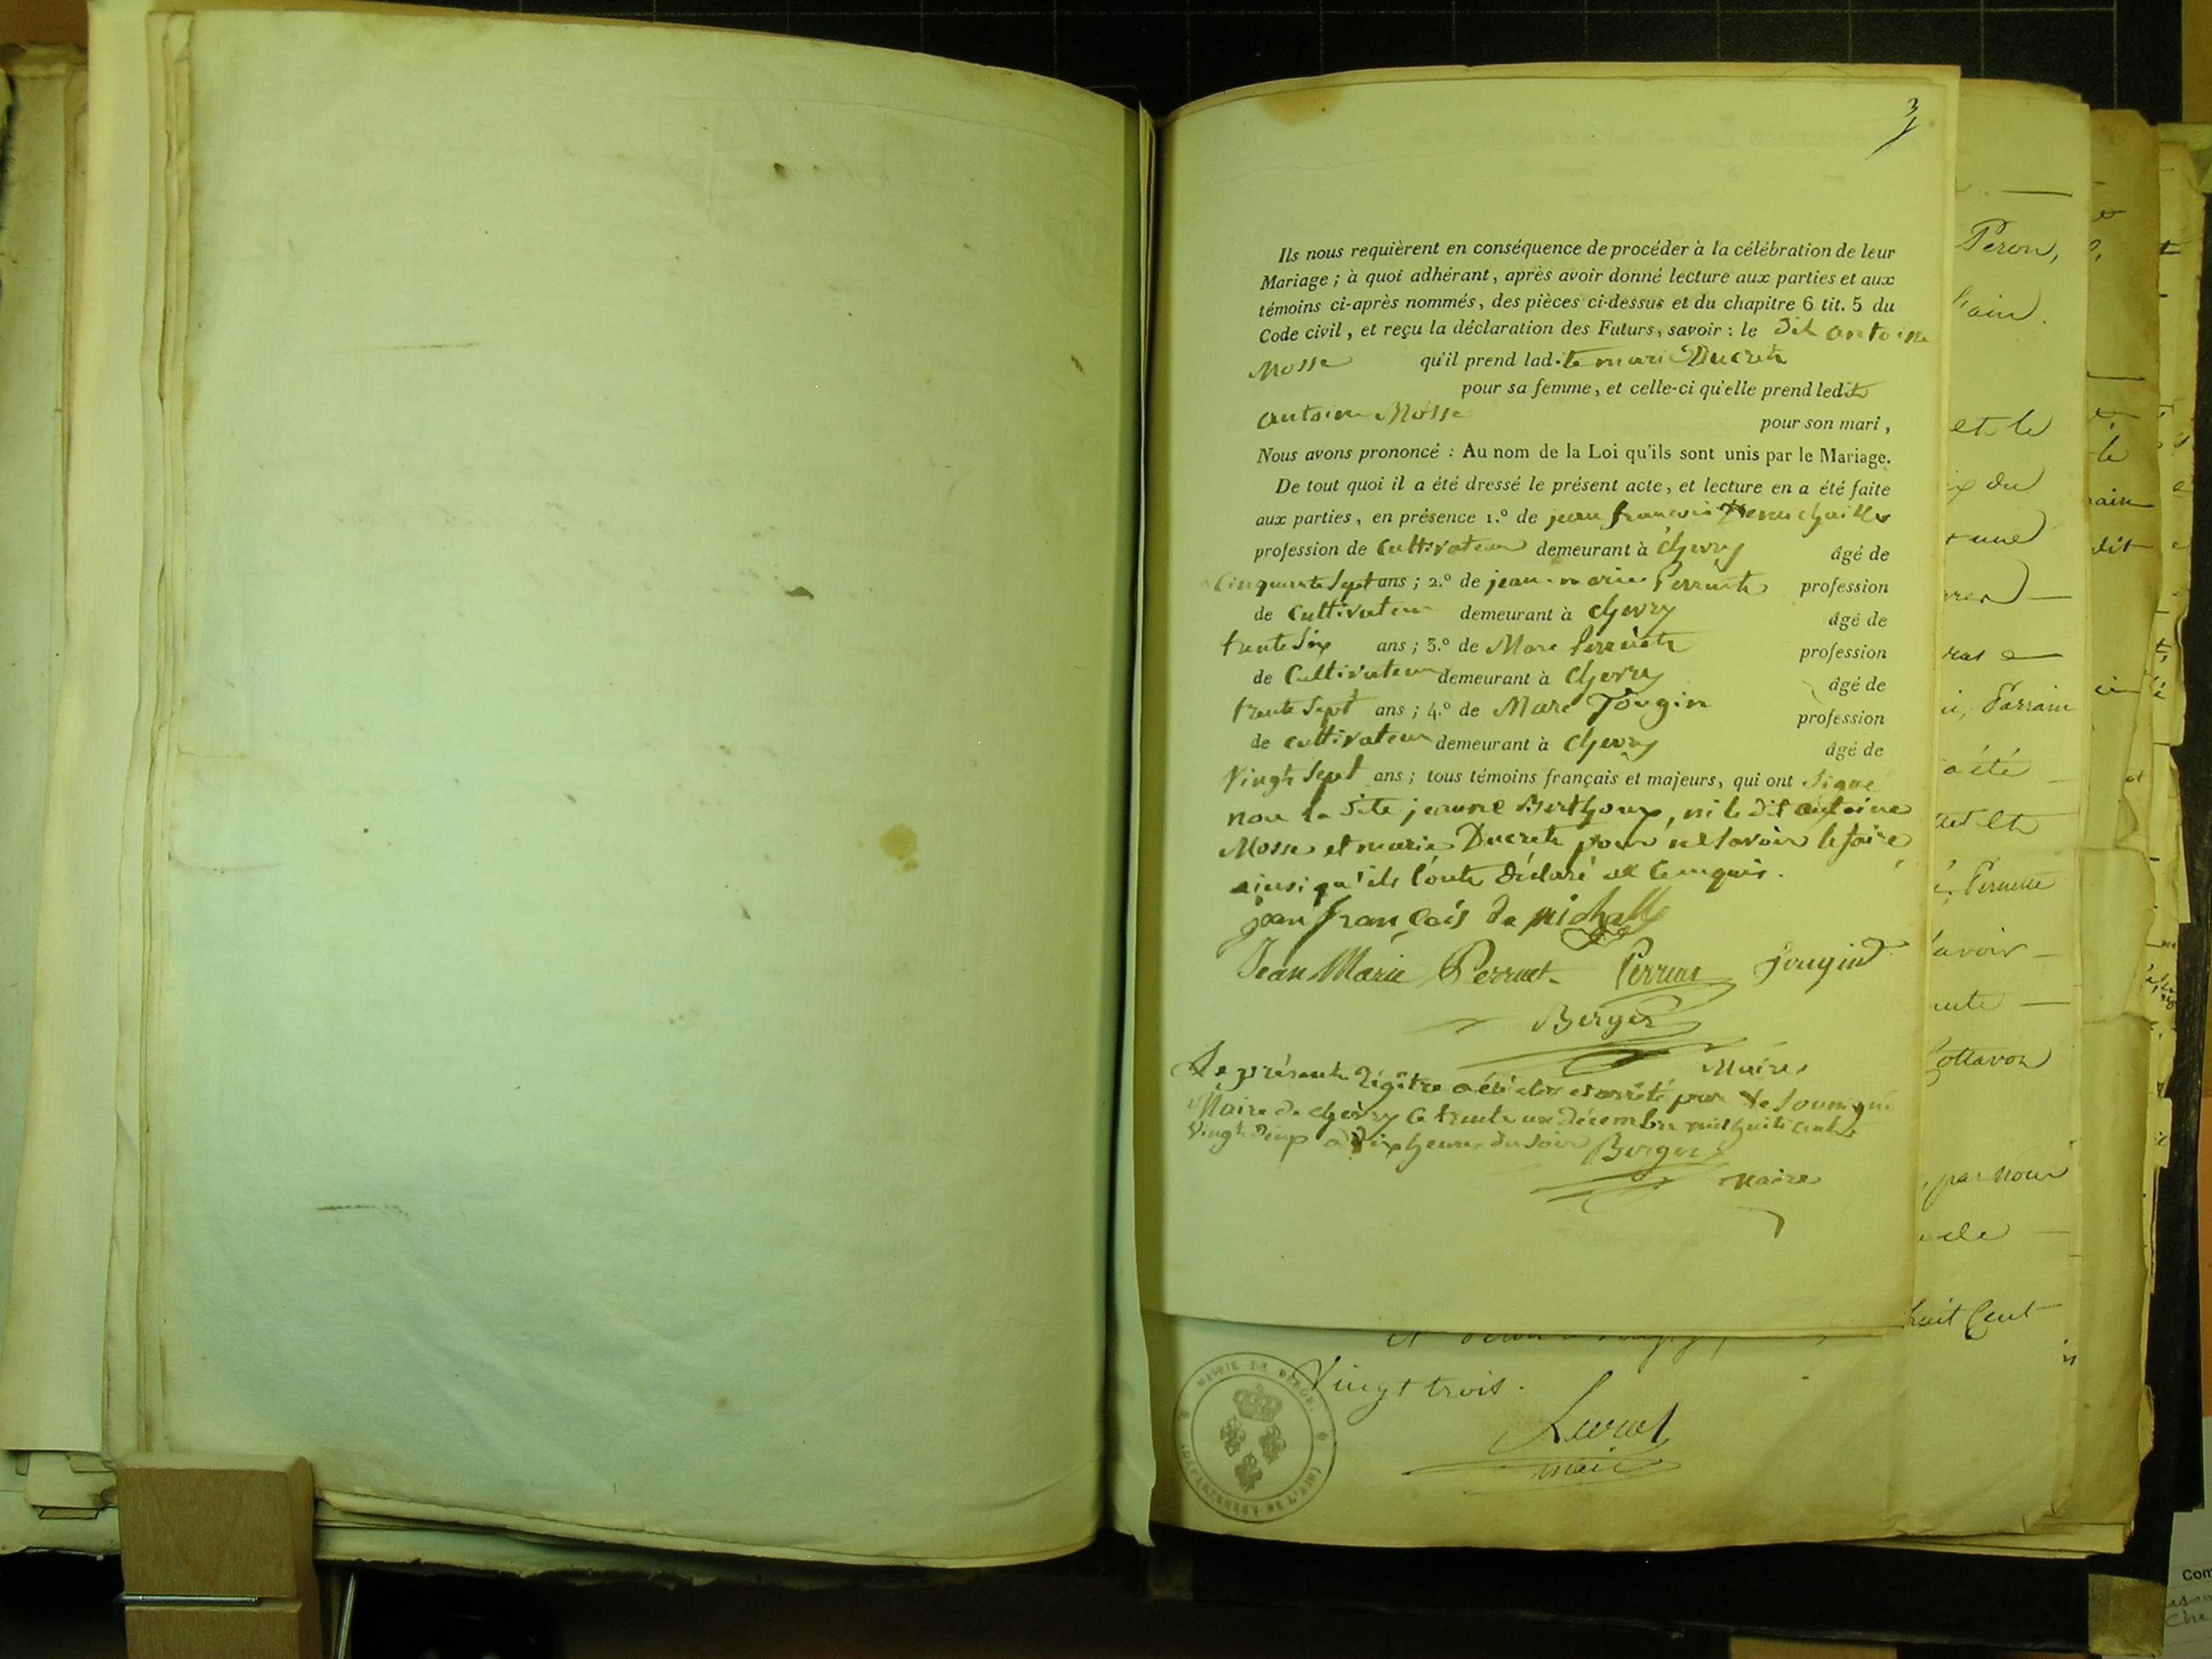 3
Ils nous requièrent en conséquence de procéder à la célébration de leur
Mariage ; à quoi adhérant, après avoir donné lecture aux parties et aux
témoins ci-après nommés, des pièces ci-dessus et du chapitre 6 tit. 5 du
Code civil, et reçu la déclaration des Futurs, savoir : le dit antoine
Mosse qu'il prend lad.te marie Ducret
pour sa femme, et celle-ci qu'elle prend ledit
antoine Mosse
pour son mari,
Nous avons prononcé : Au nom de la Loi qu'ils sont unis par le Mariage.
De tout quoi il a été dressé le présent acte, et lecture en a été faite
aux parties, en présence 1.º de jean françois
profession de Cultivateur demeurant à chevry âgé de
Cinquante Sept ans ; 2.º de jean-marie Perruet profession
de Cultivateur demeurant à chevry âgé de
trente Six ans ; 3.º de Marc Perruet profession
de Cultivateur demeurant à chevry âgé de
trente Sept ans ; 4.º de Marc Gougin profession
de cultivateur demeurant à chevry âgé de
Vingt Sept ans ; tous témoins français et majeurs, qui ont signé
non la dite jeanne Berthoux, ni le dit antoine
Mosse et marie Ducret pour ne savoir le faire
ainsi qu'ils l'ont déclaré de ce requis.
jean françois de michaille
Jean Marie Perruet Perruet Gougin
Berger
Maire
Le présent régître a été clos et arrêté par le soussigné
Maire de chevry le trente un décembre mil huit cent
Vingt deux à dix heures du soir Berger
Maire
Peron,
et le
du
une
Parrain
a été
Pernette
avoir
par nous
huit Cent
Vingt trois.
maire
MAIRIE DE